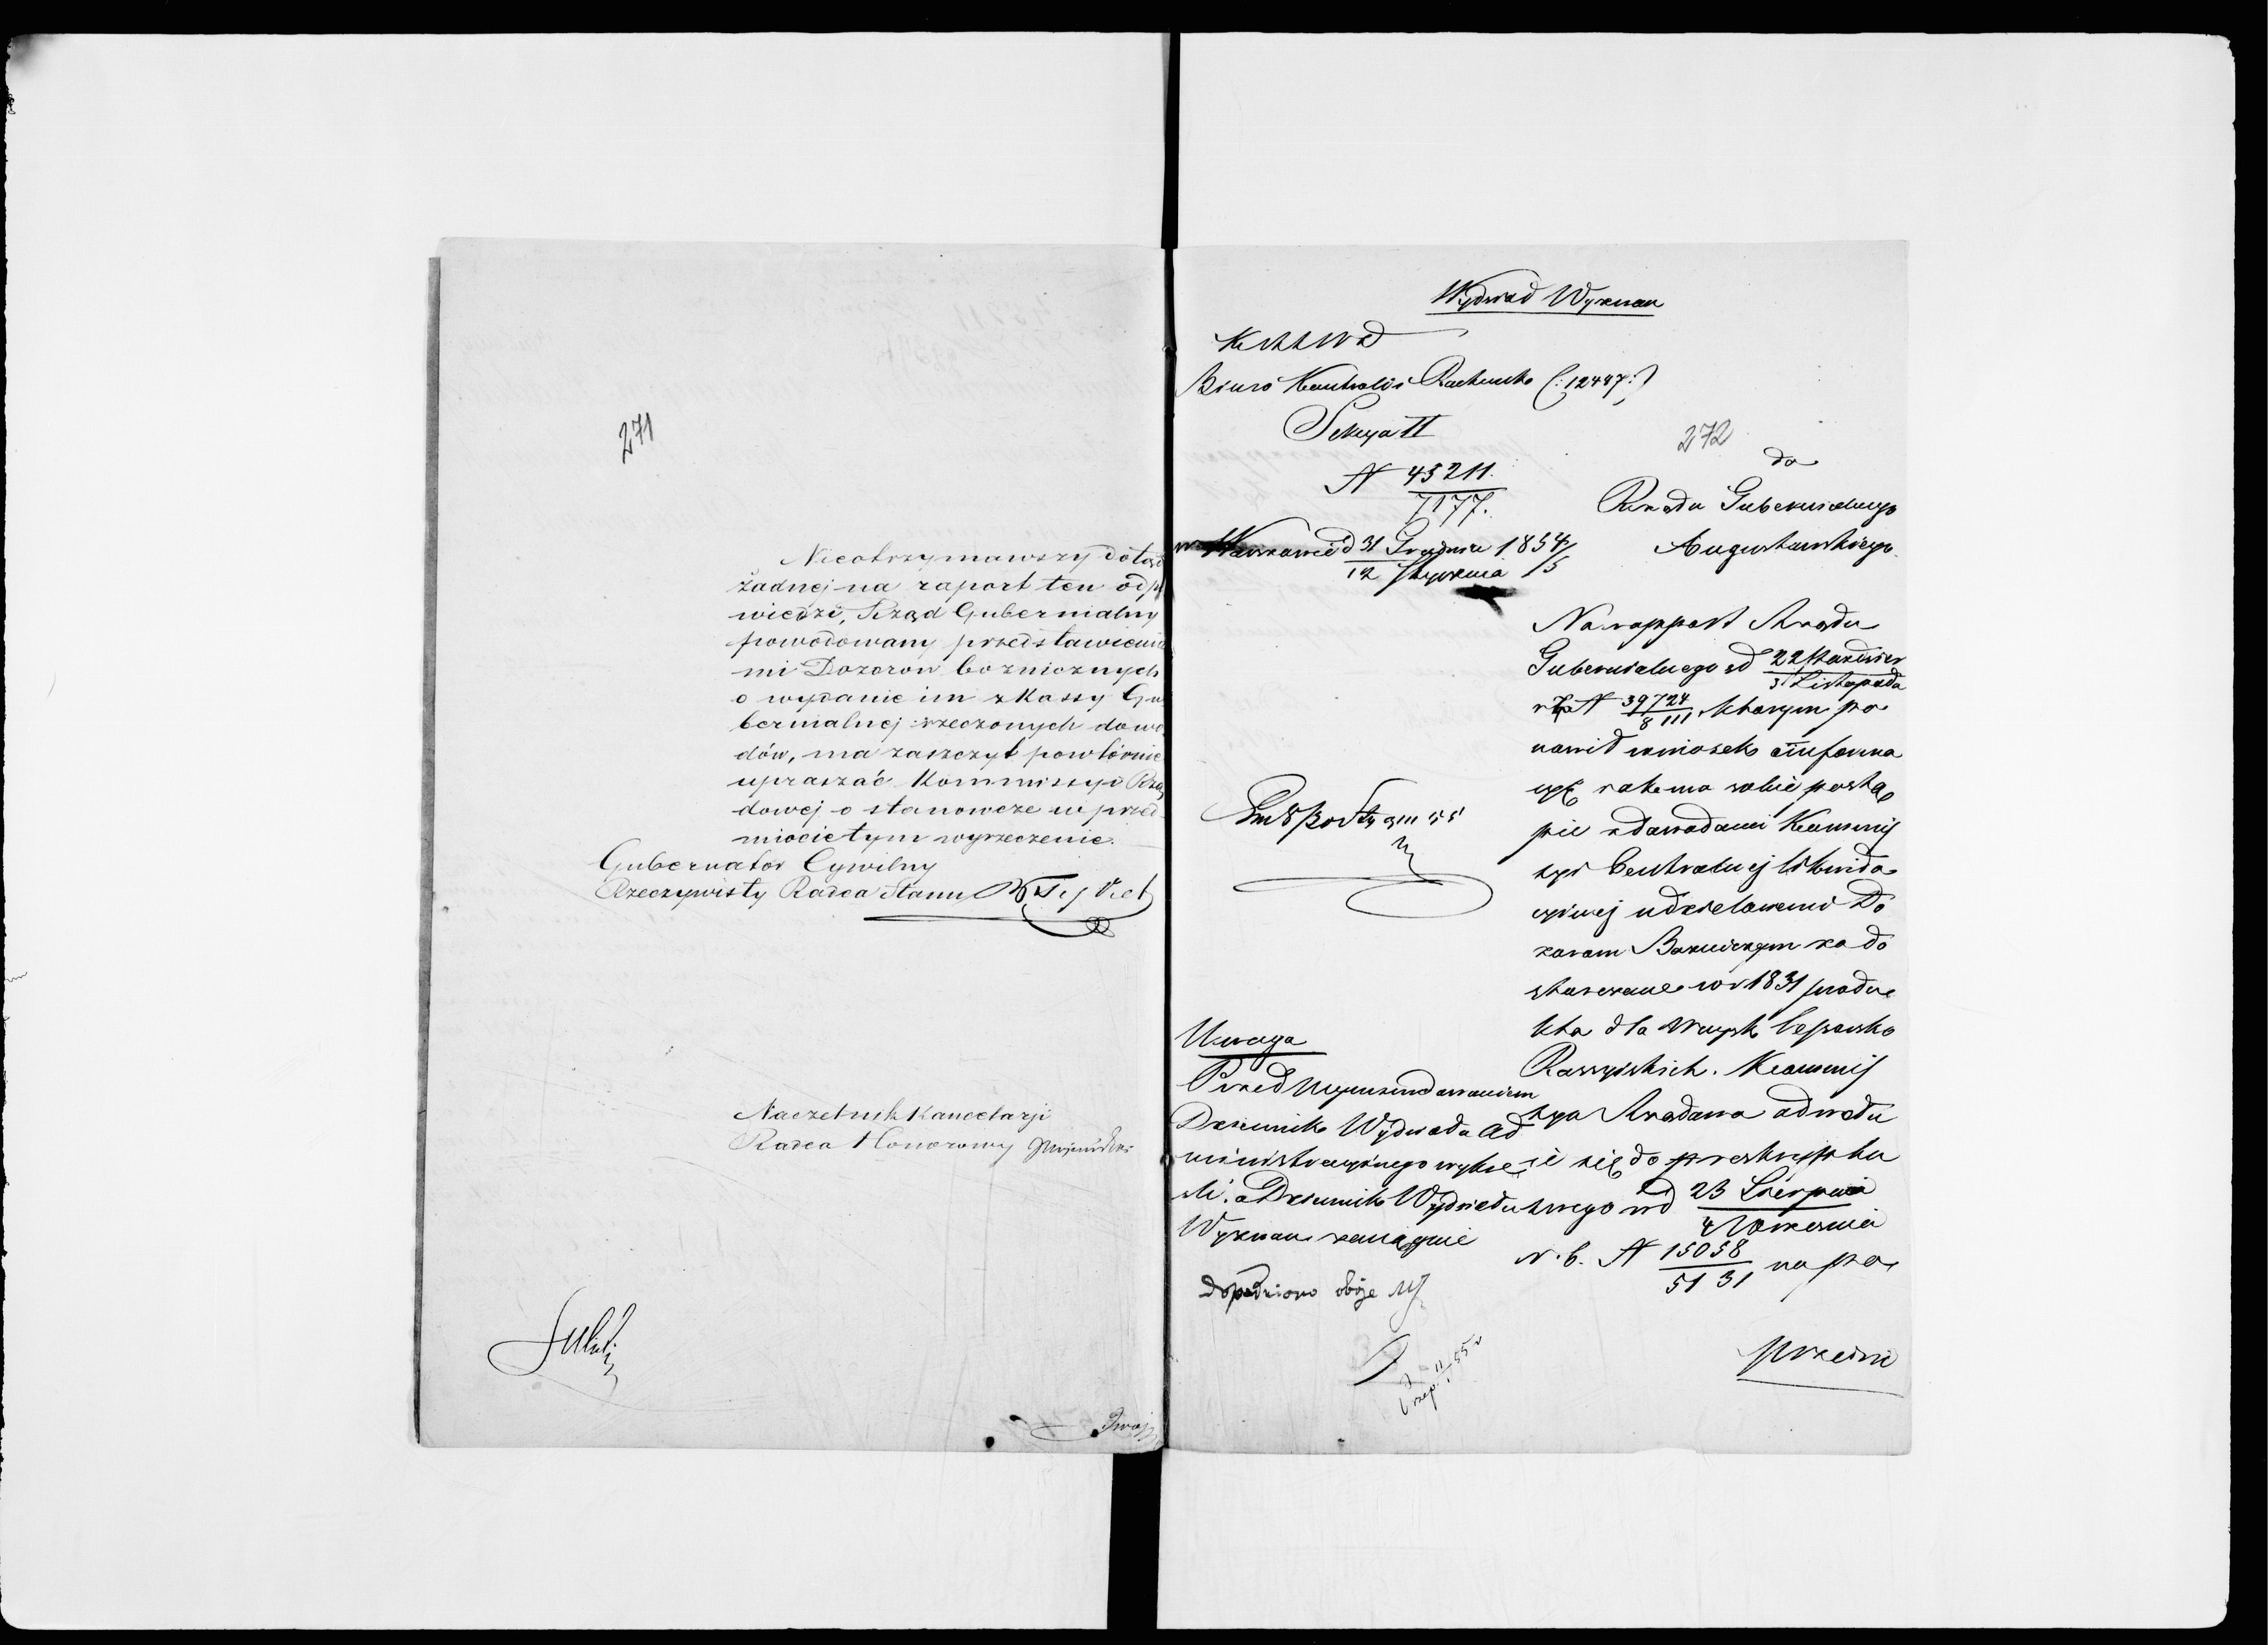 271
Nieotrzymawszy dotąd
żadnej na raport ten odp
wiedzi, Rząd Gubernialny
powodowany przedstawienia
mi Dozorow bożnicznych
o wydanie im z Kassy Gu
bernialnej rzeczonych dowo
dów, ma zaszczyt powtórnie
upraszać Kommissyi Rzą
dowej o stanowcze w przed
miocie tym wyrzeczenie.
Gubernator Cywilny
Rzeczywisty Radca Stanu
Naczelnik Kancelaryi
Radca Honorowy
Wydział Wyznan
Biuro Kontroli Rachunko (:12447:)
Sekcya II
N 43211.
7177.
w Warszawie d 31 Grudnia 1854/
12 Stycznia /5
272
do
Rządu Gubernialnego
Augustowskiego
Na rapport Rządu
Gubernialnego od 22 Pazdzier
3 Listopada
N 39724
8111 ktorym po
nowił wniosek o informa
cyę jak ma sobie postą
pić z dowodami Kommis
syi Centralnej Likwida
cyjnej udzielonemi Do
zorom Bożniczym za do
starczane w r 1831 produ
kta dla Wojsk Cesarsko
Rossyiskich. Kommis
sya Rządowa odwołu
je się do preskryptu
swego od 23 Sierpnia
4 Wrzesnia
r. b. N 15058
5131 na po
przedni
Uwaga
Przed wyexpedowaniem
Dziennik Wydziału Ad
ministracyjnego wykre
śli. a Dziennik Wydziału
Wyznan zaciągnie
dopełniono oboje